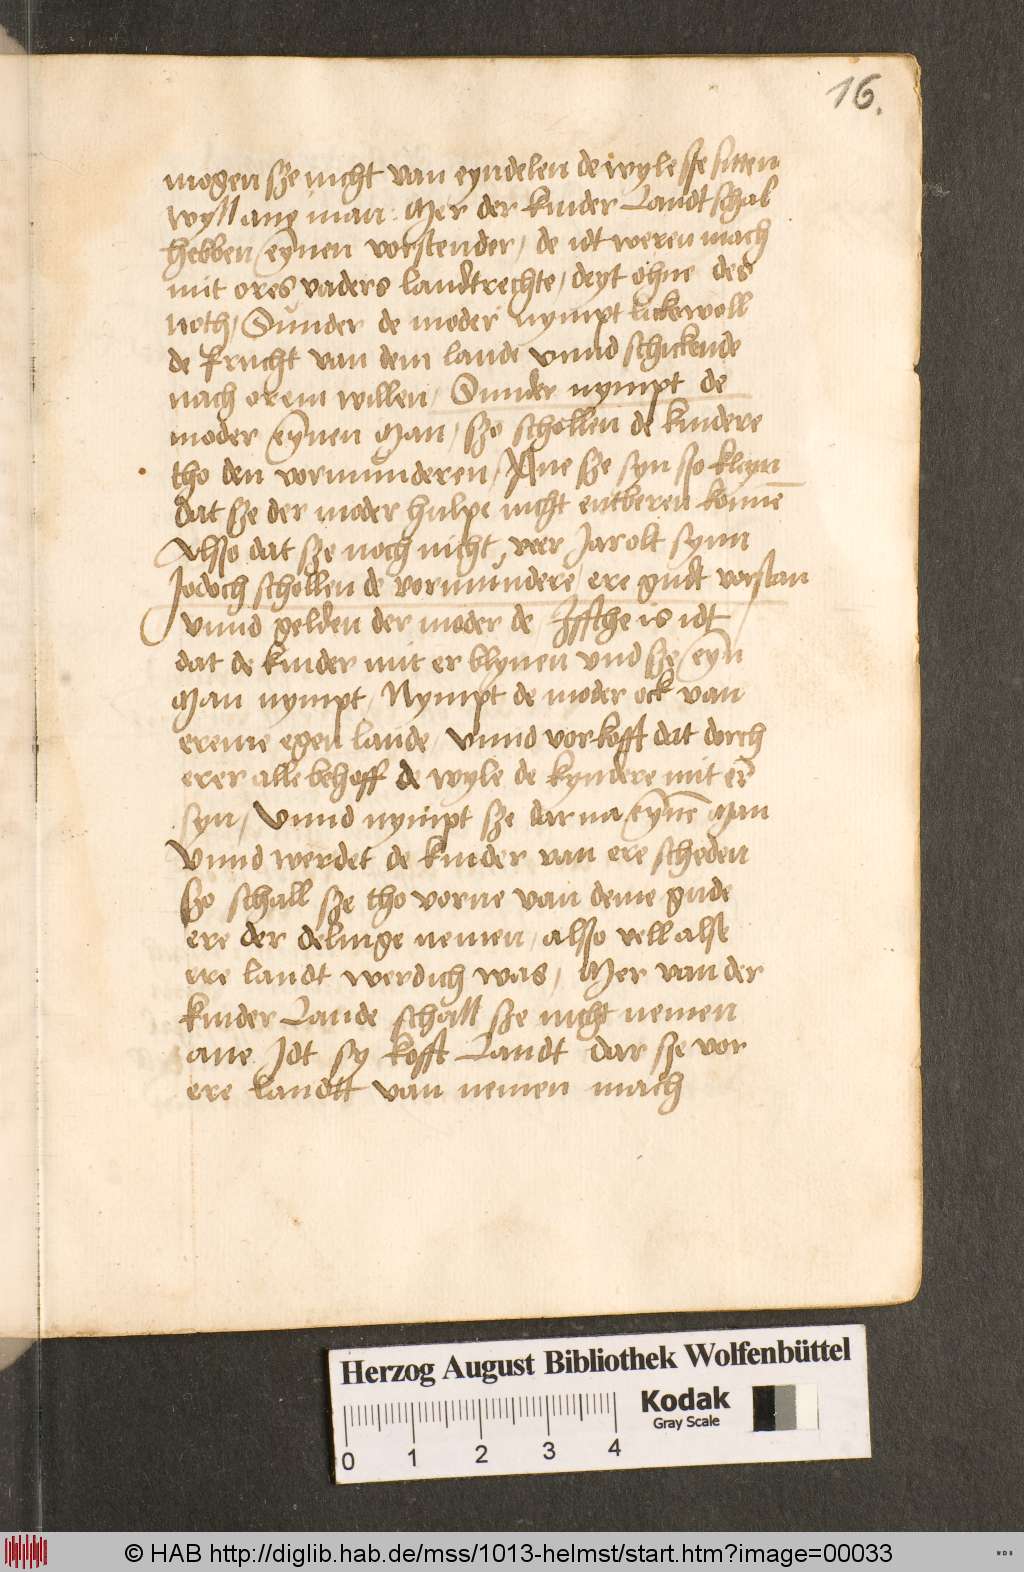 16.
mogen sze nicht van eyndelen de wyle sse sitten
wyll ane man. Mer der kinder Landt schal
hebben eynen vorstender, de idt weren mach
mit ores vaders landtrechte, deyt ohne des
noth, Sunder de moder nympt lickewoll
de frucht van dem lande vnnd schickende
nach orem willen, Sunder nympt de
moder eynen Man, szo schollen de kindere
tho den vormunderen, Ane sze syn sso kleyn
dat sze der moder hulpe nicht entberen konne
Alsso dat sze noch nicht veer Jarolt synn
Jodoch schollen de vormundere ere gudt vorstan
vnnd gelden der moder de Iffthe is idt
dat de kinder mit er blynen vnd sze eyn
Man nympt, Nympt de moder ock van
ereme egen lande vnnd vorkofft dat dorch
erer alle behoff de wyle de kyndere mit er
syn, Vnnd nympt sze dar na eyne Man
Vnnd werdet de kinder van ere scheden
szo schall sze tho vorne van deme gude
ere der delinge nemen, alsso vell alse
ere landt werdich was, Mer van der
kinder Lande schall sze nicht nemen
ane Jdt sy kofft Landt dar sze vor
ere landtt van nemen mach
Herzog August Bibliothek Wolfenbüttel
Kodak
Gray Scale
0 1 2 3 4
© HAB http://diglib.hab.de/mss/1013-helmst/start.htm?image=00033